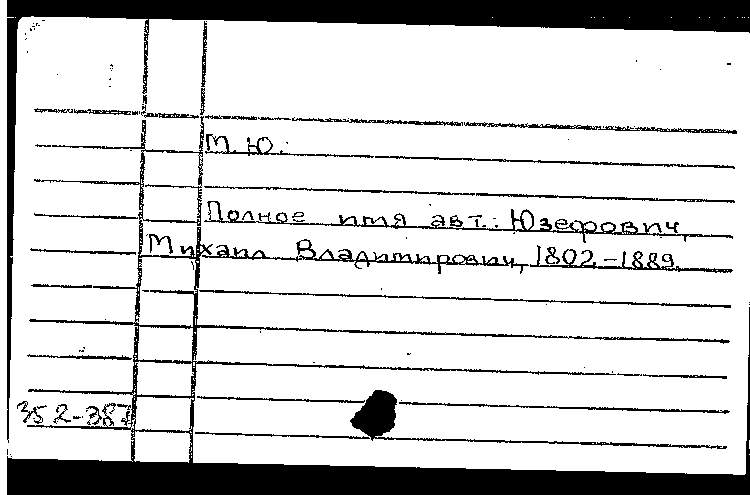 М. Ю.
Полное имя авт.: Юзефович,
Михаил Владимирович, 1802-1889.
352-387